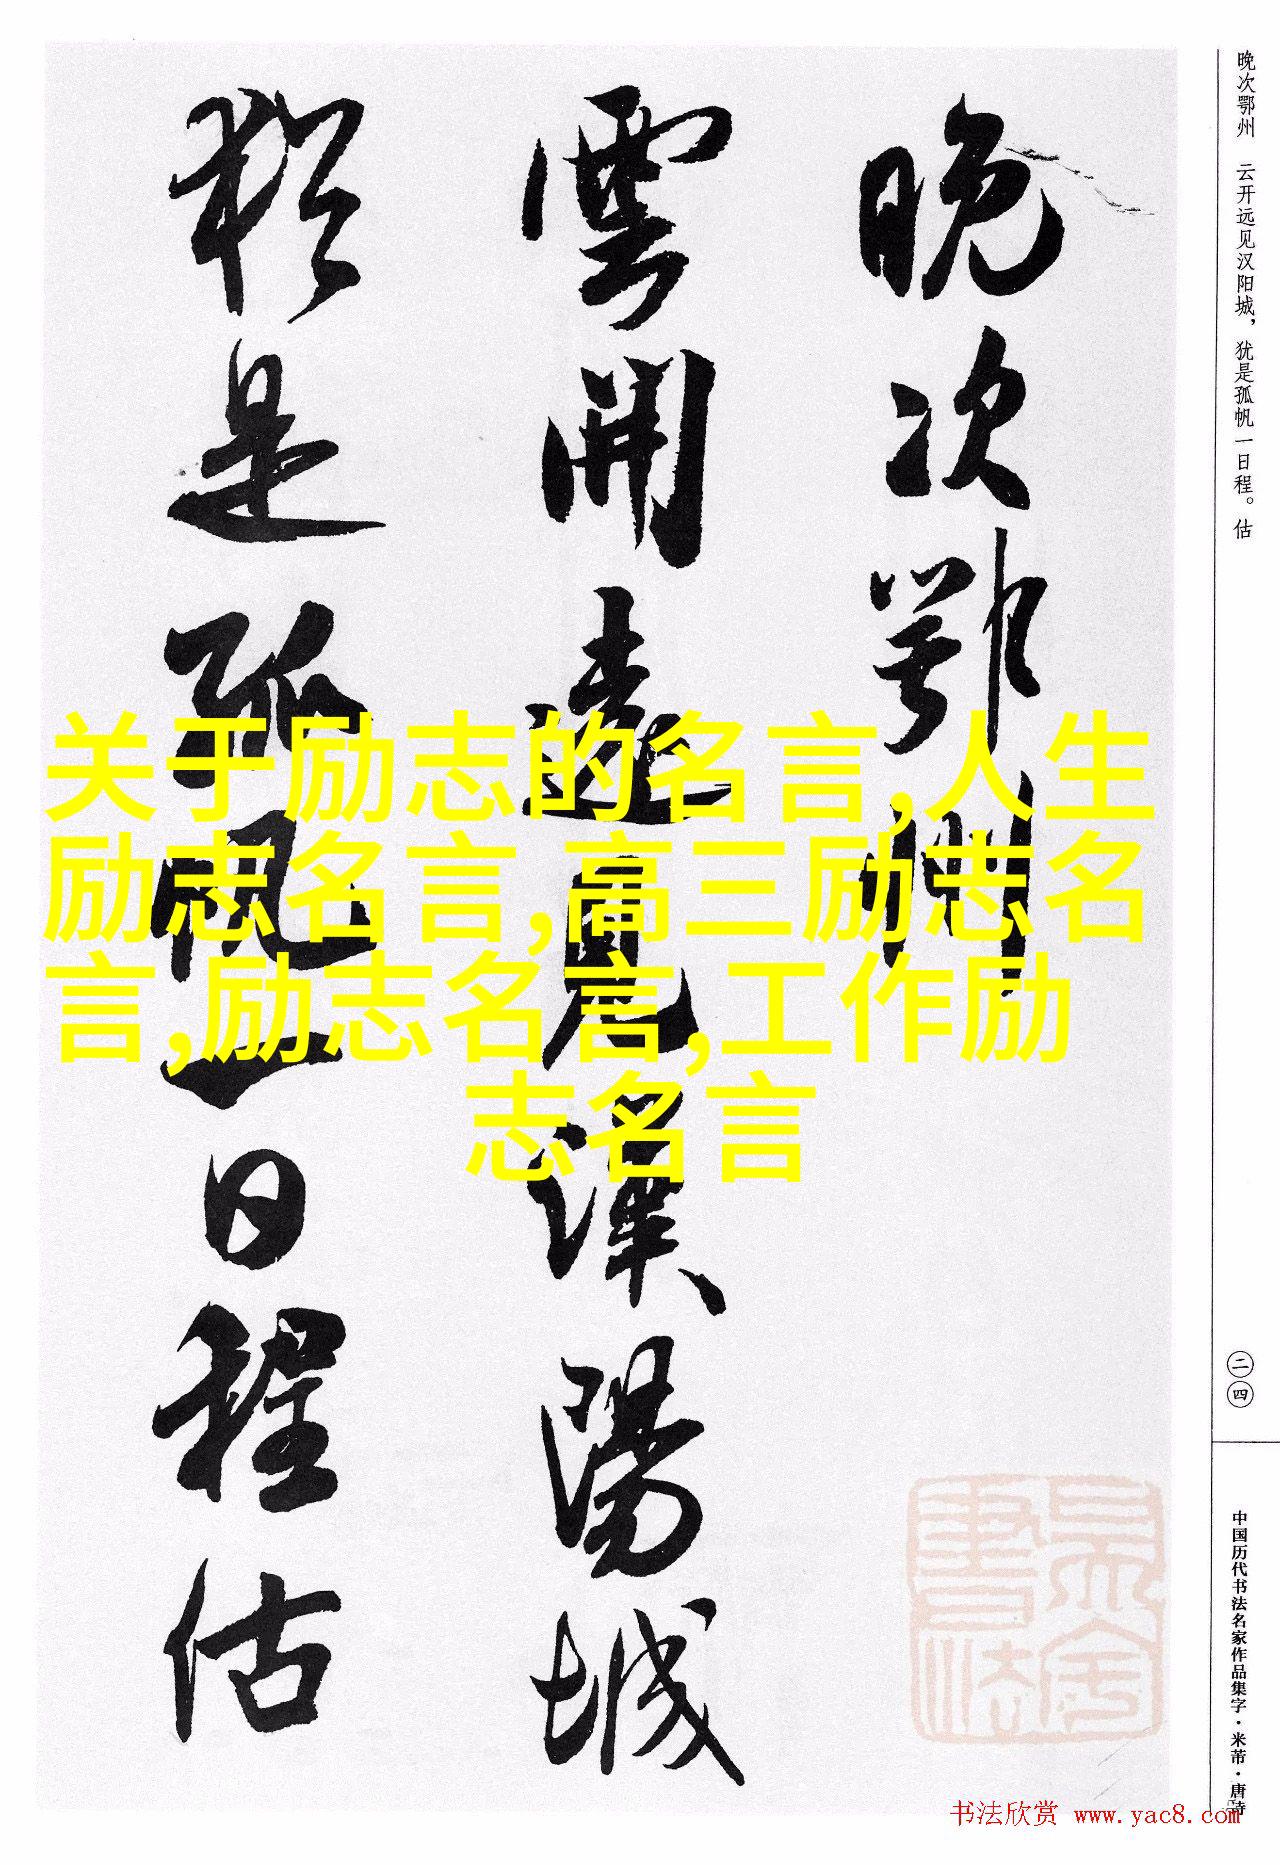 晚次鄂州
雲開遠見漢陽城
猶是孤帆一日程估
晚次鄂州　云开远见汉阳城，犹是孤帆一日程。估
二四
中国历代书法名家作品集字·米芾·唐诗
关于励志的名言,人生
励志名言,高三励志名
言,励志名言,工作励
志名言
书法欣赏 www.yac8.com